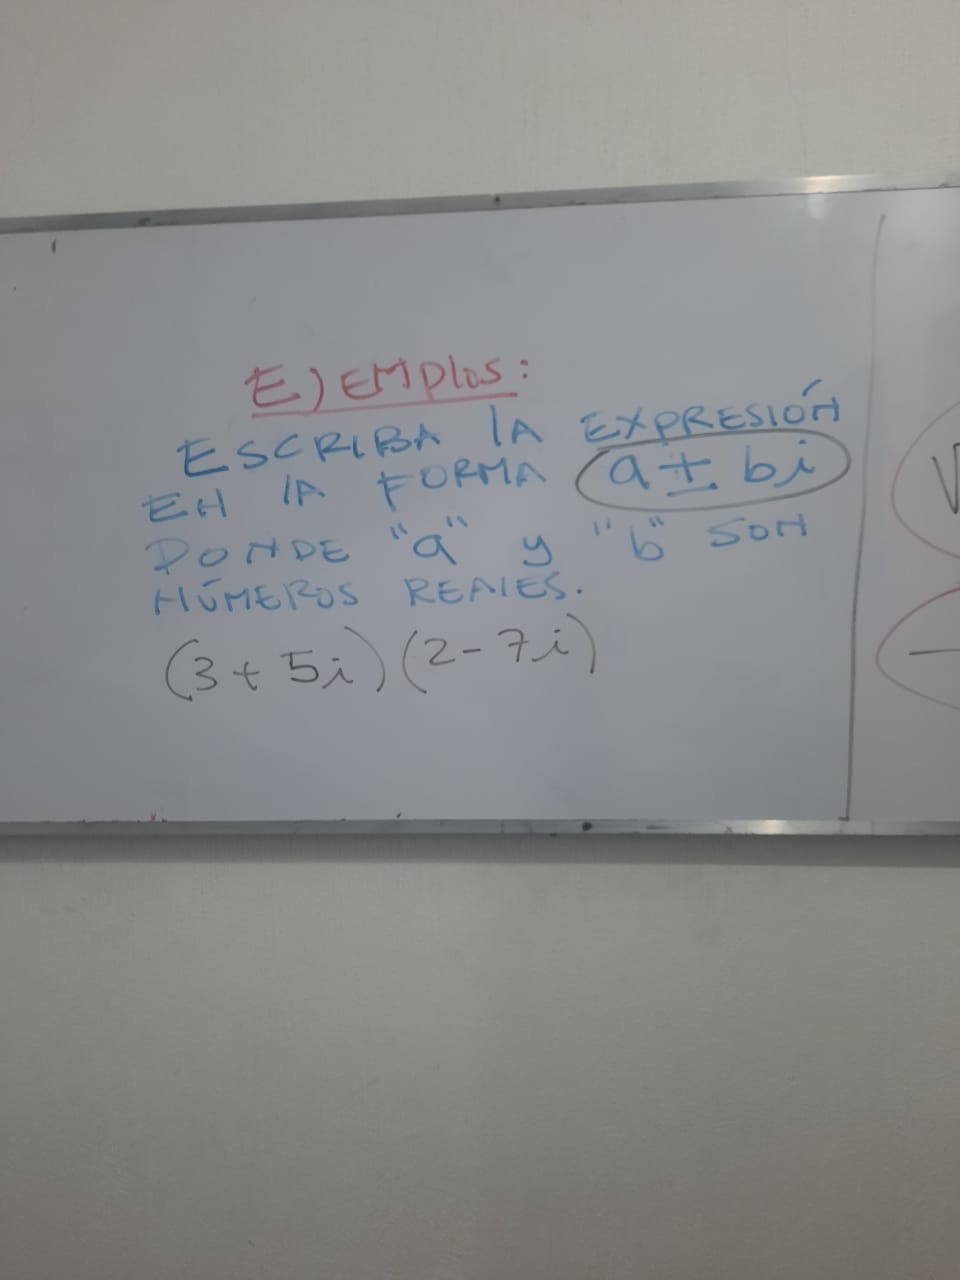 EJEMPlOS:
ESCRIBA lA EXPRESIÓN
EN lA FORMA a ± bi
DONDE "a" y "b" SON
NÚMEROS REAlES.
(3 + 5i)(2 - 7i)